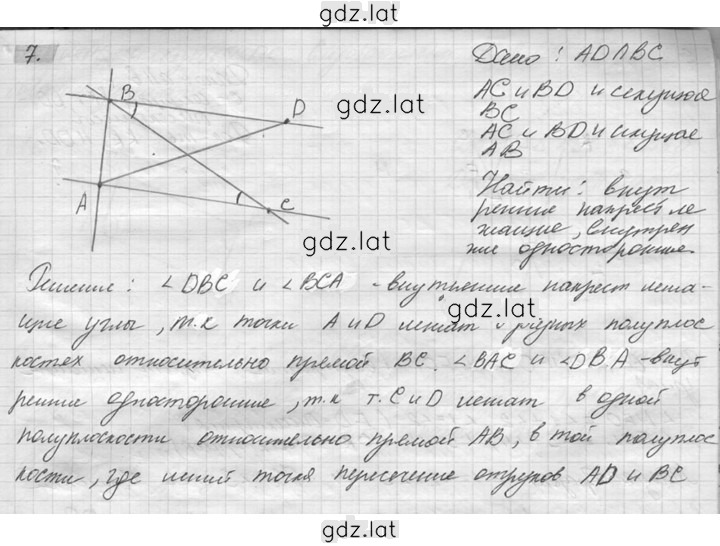 gdz.lat
7.
Дано: AD∩BC
B
D
A
C
gdz.lat
AC и BD и секущая
BC
AC и BD и секущая
AB
gdz.lat
Найти: внут
ренние накрест ле
жащие, внутрен
ние односторонние.
gdz.lat
Решение: ∠DBC и ∠BCA - внутренние накрест лежа-
щие углы, т.к точки A и D лежат в разных полуплос
костях относительно прямой BC. ∠BAC и ∠DBA - внут
ренние односторонние, т.к т. C и D лежат в одной
полуплоскости относительно прямой AB, в той полуплос
кости, где лежит точка пересечение отрезков AD и BC
gdz.lat
gdz.lat